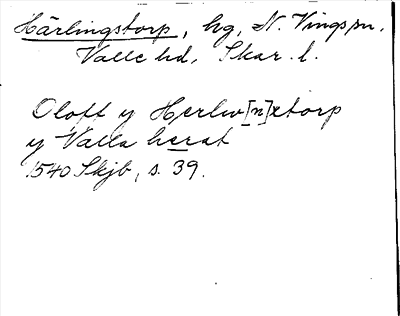 Härlingstorp, hg, N. Vings sn,
Valle hd, Skar. l.
Oloff y Herlw[n]xtorp
y Valla herat
1540 Skjb, s. 39.